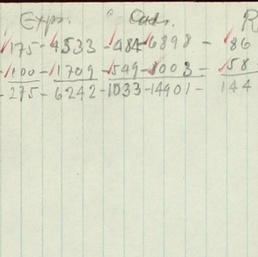 Exps. " Cads. R
175 - 4533 - 484 - 6398 - 86
100 - 1709 - 549 - 8003 - 58
- 275 - 6242 - 1033 - 14401 - 144